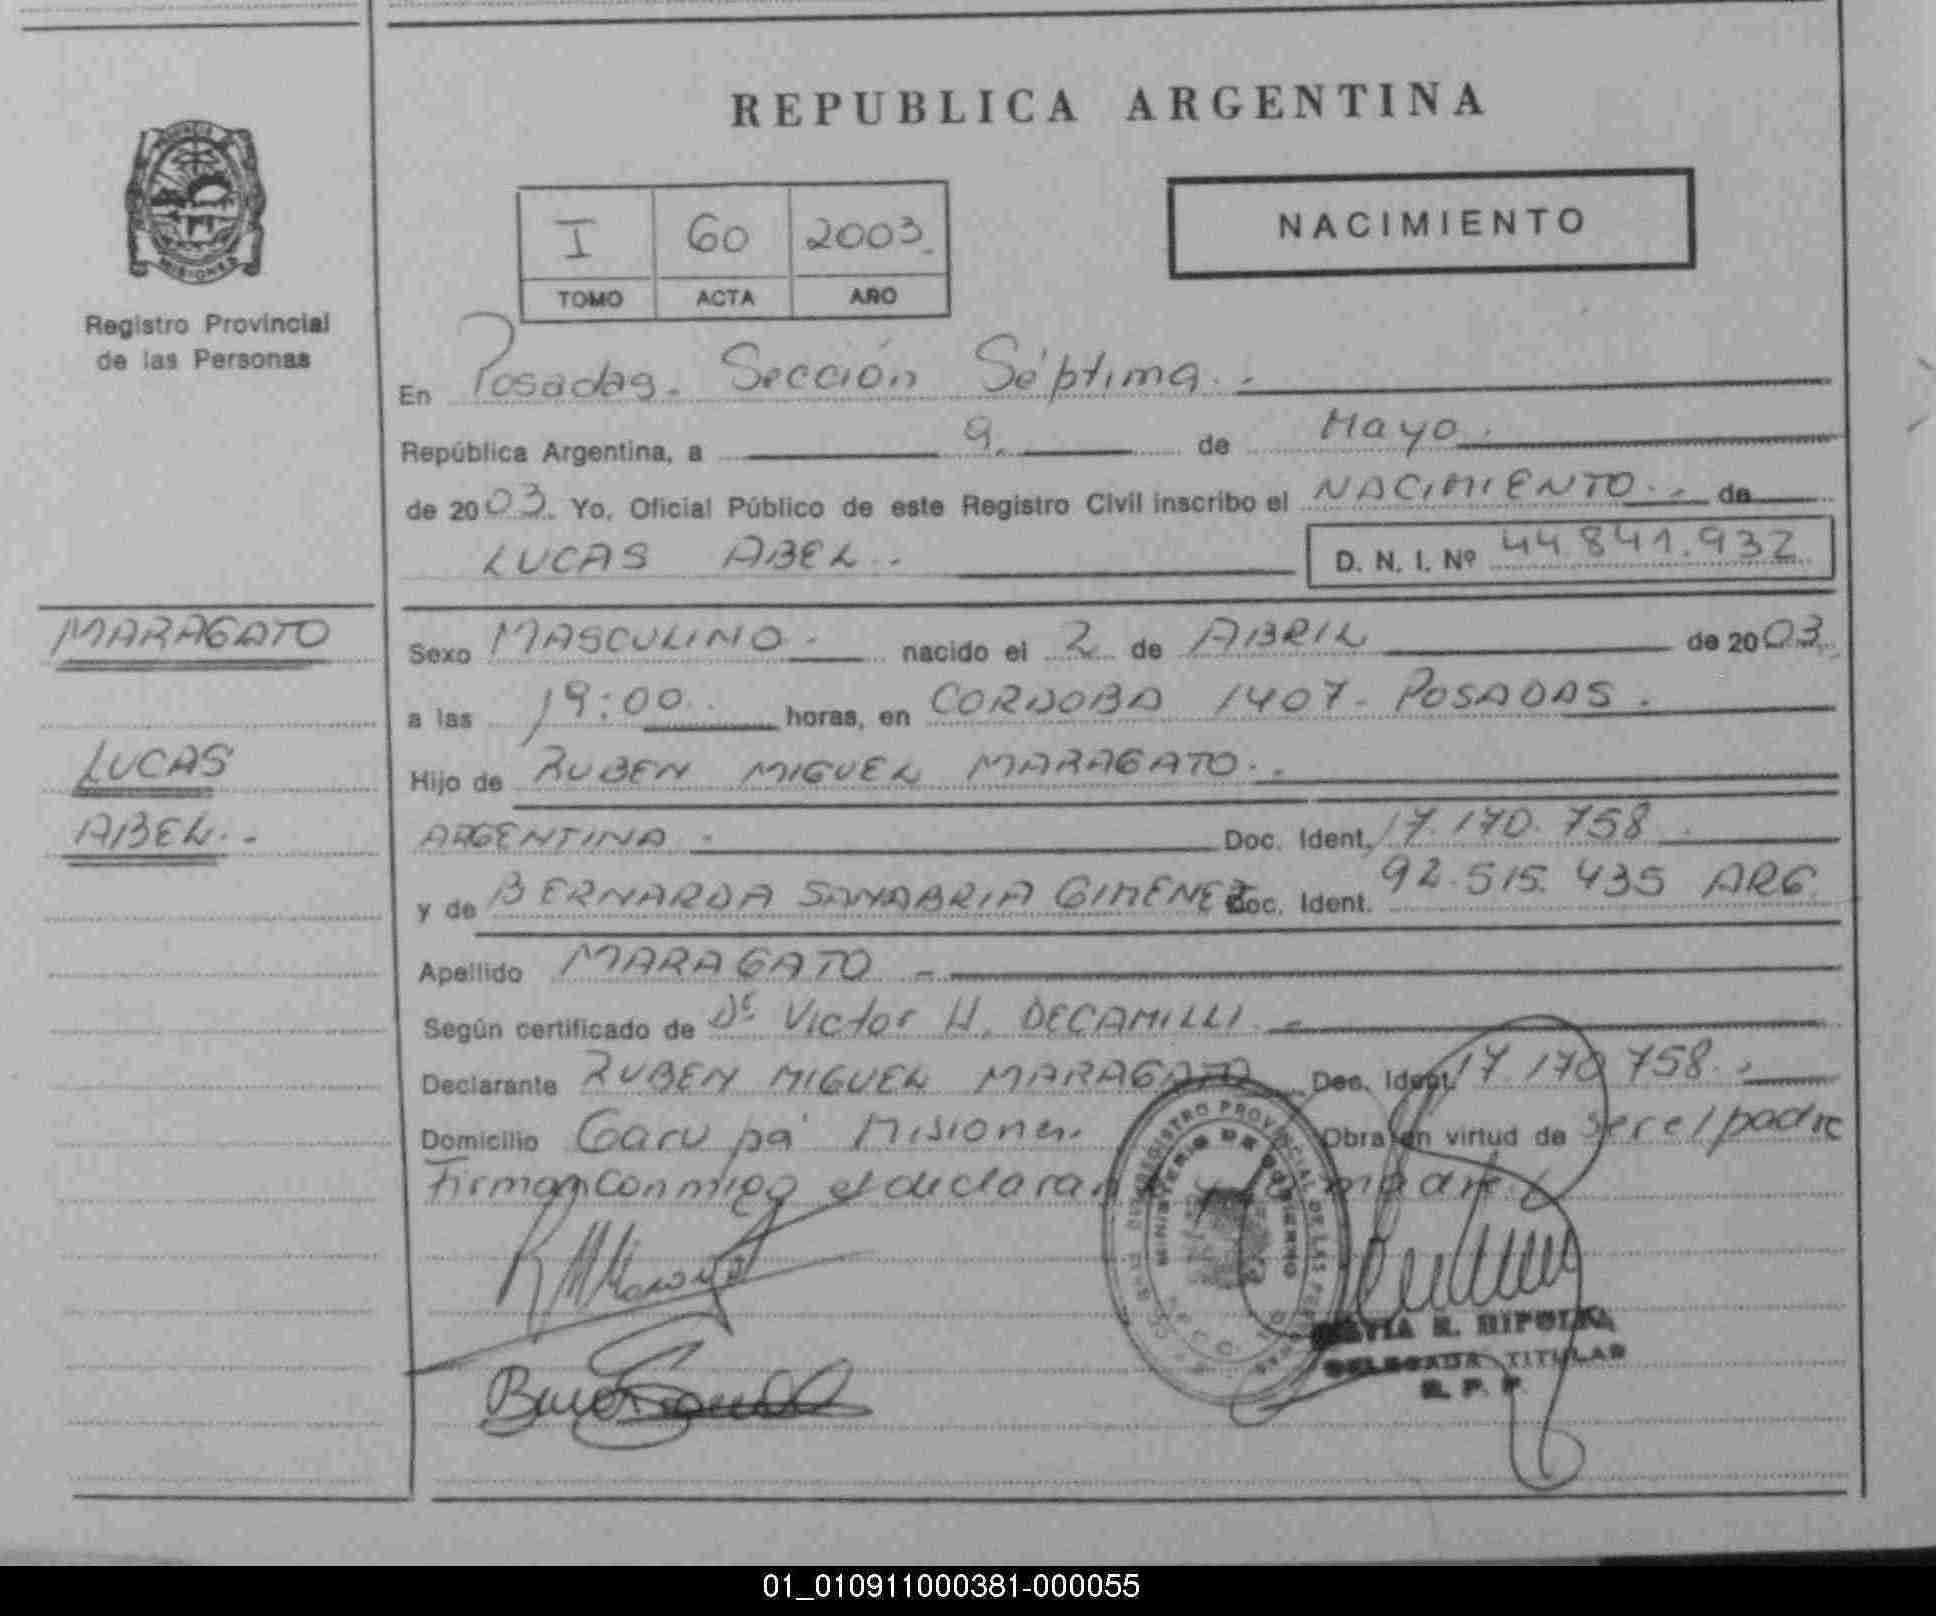 REPUBLICA ARGENTINA
NACIMIENTO
I 60 2003.
TOMO ACTA AÑO
MISIONES
Registro Provincial
de las Personas
En Posadas. Sección Séptima.
República Argentina, a 9. de Mayo.
de 2003. Yo, Oficial Público de este Registro Civil inscribo el NACIMIENTO. de
LUCAS ABEL. D. N. I. Nº 44.841.932
MARAGATO
LUCAS
ABEL.
Sexo MASCULINO. nacido el 2 de ABRIL de 2003.
a las 19:00 horas, en CORDOBA 1407. POSADAS.
Hijo de RUBEN MIGUEL MARAGATO.
ARGENTINA. Doc. Ident. 17.170.758
y de BERNARDA SANABRIA GIMENEZ Doc. Ident. 92.515.435 ARG.
Apellido MARAGATO
Según certificado de Dr Victor H. DECAMILLI.
Declarante RUBEN MIGUEL MARAGATO Doc. Ident. 17.170.758.
Domicilio Garupá Misiones. Obra en virtud de ser el padre
Firman conmigo el declarante y la madre
REGISTRO PROVINCIAL DE LAS PERSONAS
MINISTERIO DE GOBIERNO
DELEGADA TITULAR
R. P. P.
01_010911000381-000055